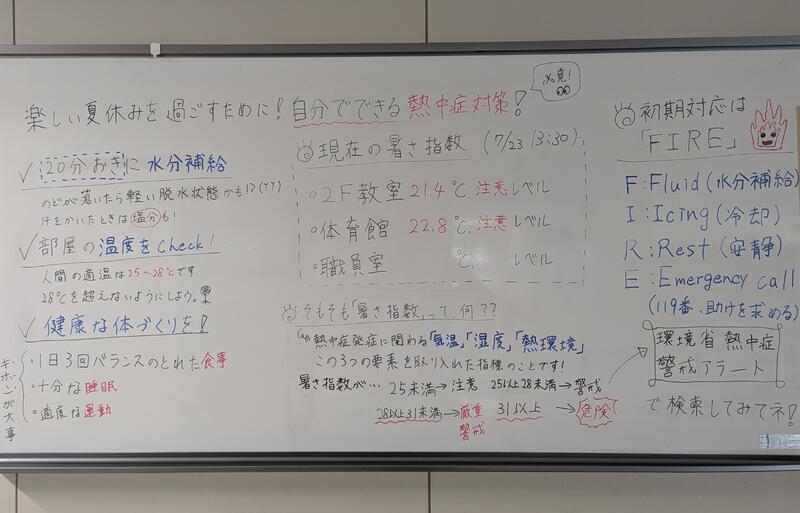 楽しい夏休みを過ごすために！自分でできる熱中症対策！
必見！
✓20分おきに水分補給
のどが渇いたら軽い脱水状態かも!?
汗をかいたときは塩分も！
✓部屋の温度をCheck！
人間の適温は25〜28℃です
28℃を超えないようにしよう。
✓健康な体づくりを！
キホンが大事
・1日3回バランスのとれた食事
・十分な睡眠
・適度な運動
現在の暑さ指数 (7/23 13:30)
・2F教室 21.4℃、注意レベル
・体育館 22.8℃、注意レベル
・職員室 ℃、 レベル
そもそも「暑さ指数」って、何??
熱中症発症に関わる「気温」「湿度」「熱環境」
この3つの要素を取り入れた指標のことです！
暑さ指数が… 25未満→注意 25以上28未満→警戒
28以上31未満→厳重警戒 31以上→危険
初期対応は
「FIRE」
F:Fluid(水分補給)
I:Icing(冷却)
R:Rest(安静)
E:Emergency call
(119番、助けを求める)
環境省 熱中症
警戒アラート
で検索してみてネ！